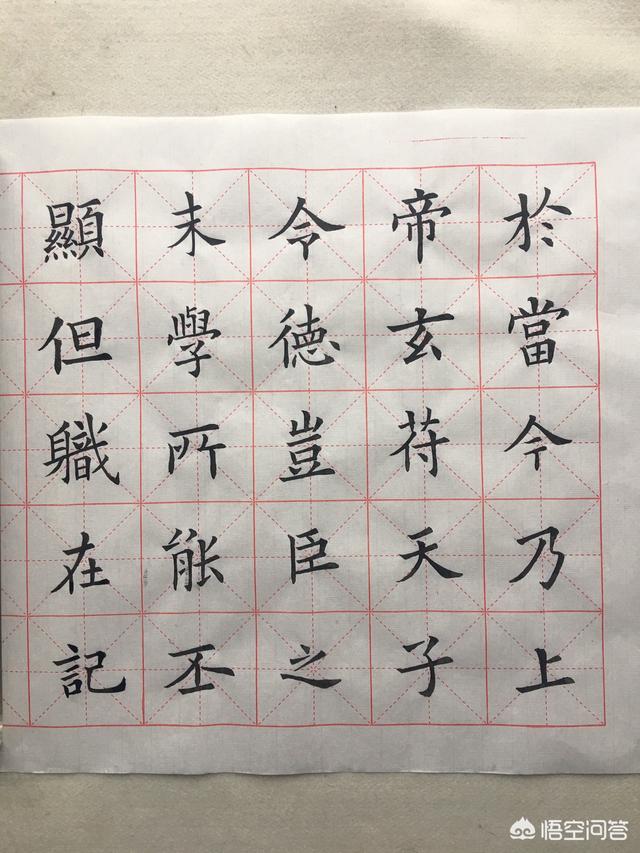 於當今乃上
帝玄符天子
令德豈臣之
末學所能丕
顯但職在記
悟空问答